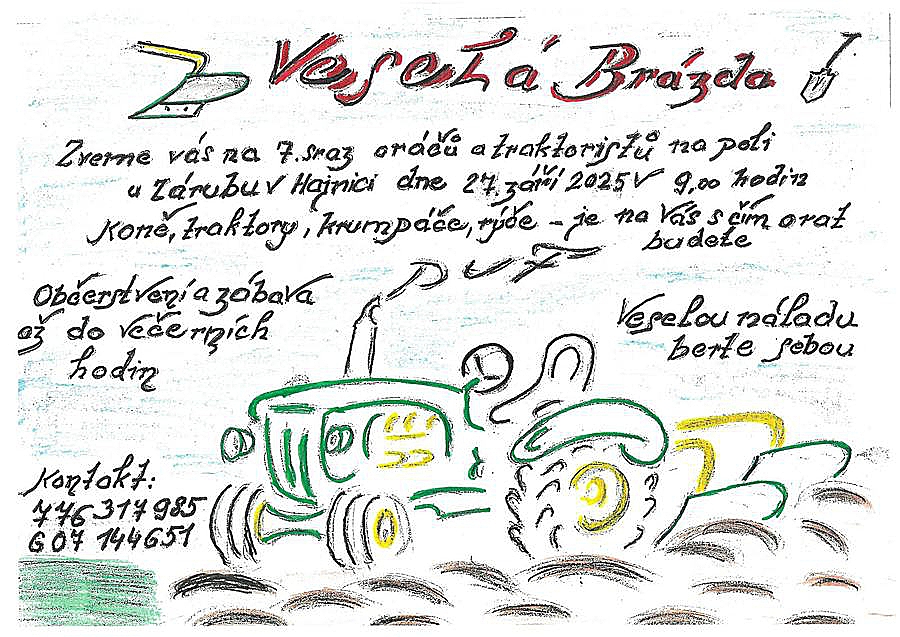 Veselá Brázda
Zveme vás na 7. sraz oráčů a traktoristů na poli
u Zárubu v Hajnici dne 27. září 2025 v 9,00 hodin
Koně, traktory, krumpáče, rýče – je na Vás s čím orat
budete
PUF
Občerstvení a zábava
až do večerních
hodin
Veselou náladu
berte sebou
Kontakt:
776 317 985
607 144651